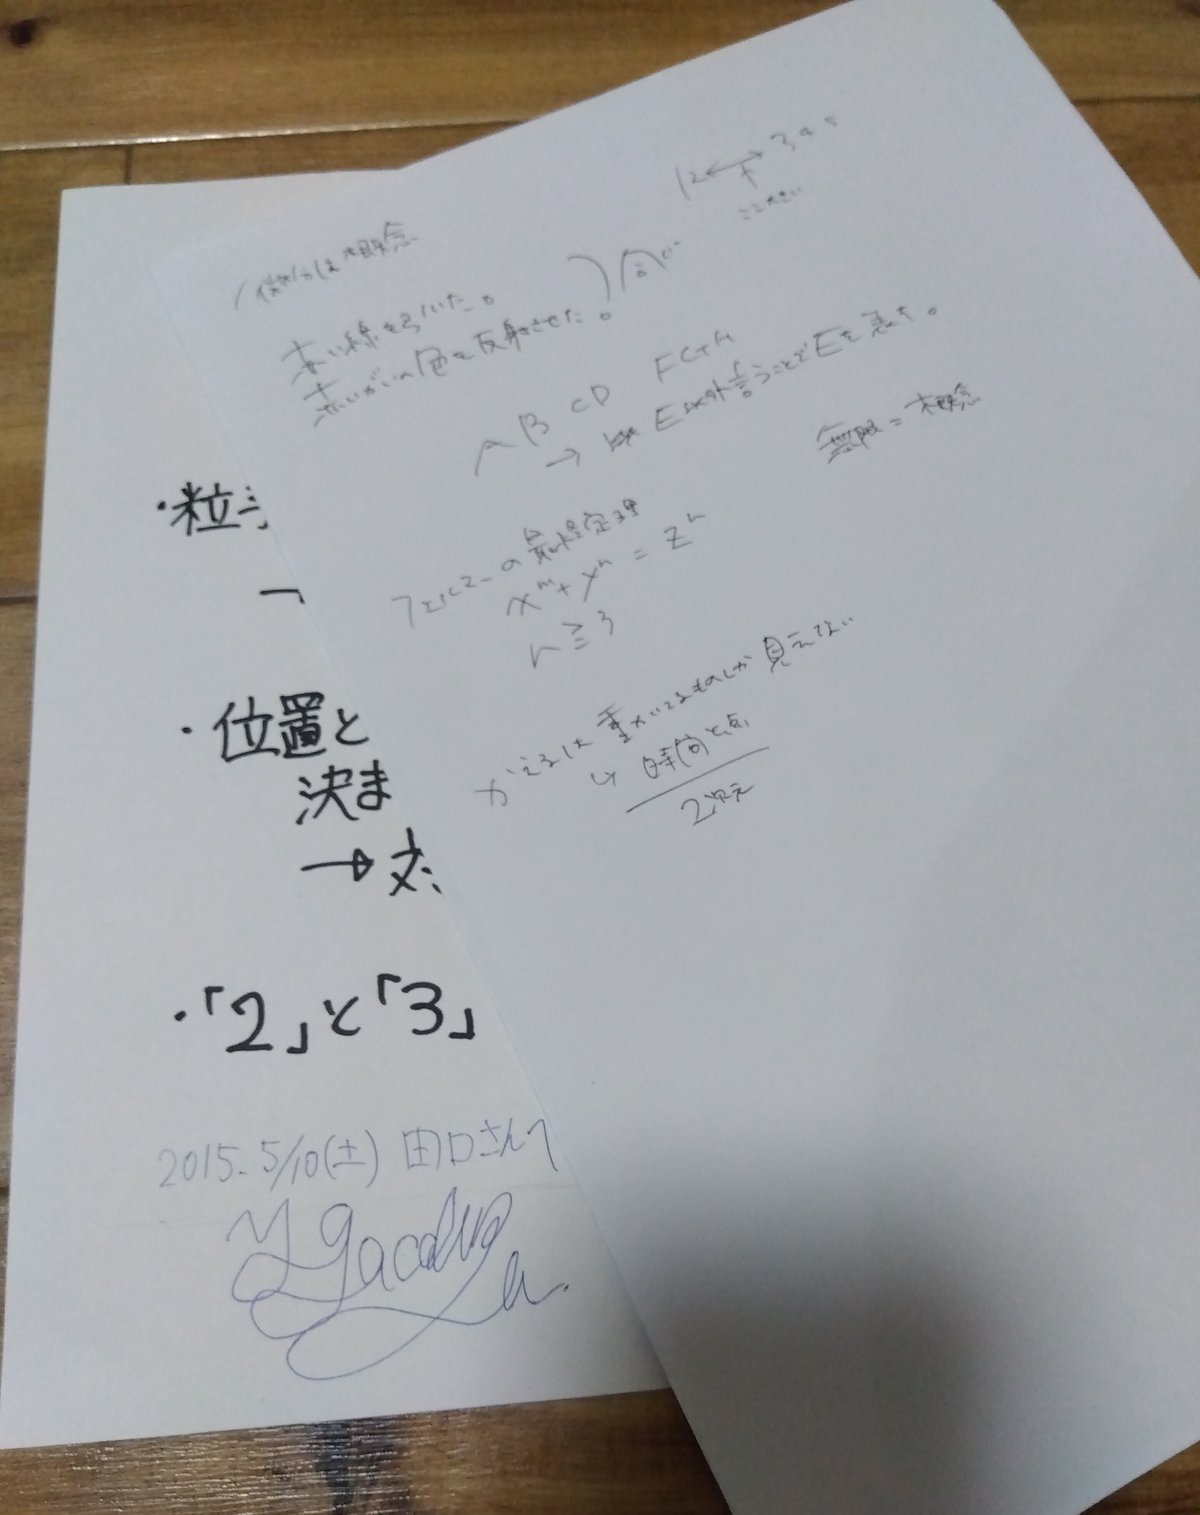 12 ↔ 3 4 5
微分は概念
赤い線を引いた。
赤いがいの色を反射させた。 同じ
A B C D F G H
→ E以外言うことでEを表す。
無限=概念
フェルマーの最終定理
xⁿ + yⁿ = zⁿ
n ≧ 3
かえるは重_いてるものしか見えない
↳ 時間と点
2次元
・粒子
「
・位置と
決ま
→ 対
・「2」と「3」
2015. 5/10(土) 田口さんへ